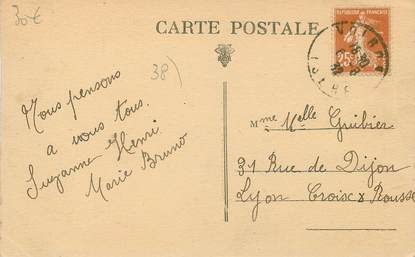 30€
CARTE POSTALE
38)
RÉPUBLIQUE FRANÇAISE
25c
VOIRON
ISÈRE
Nous pensons
a vous tous.
Suzanne Henri
Marie Bruno
Mme Melle Gribier
31 Rue de Dijon
Lyon Croix Rousse